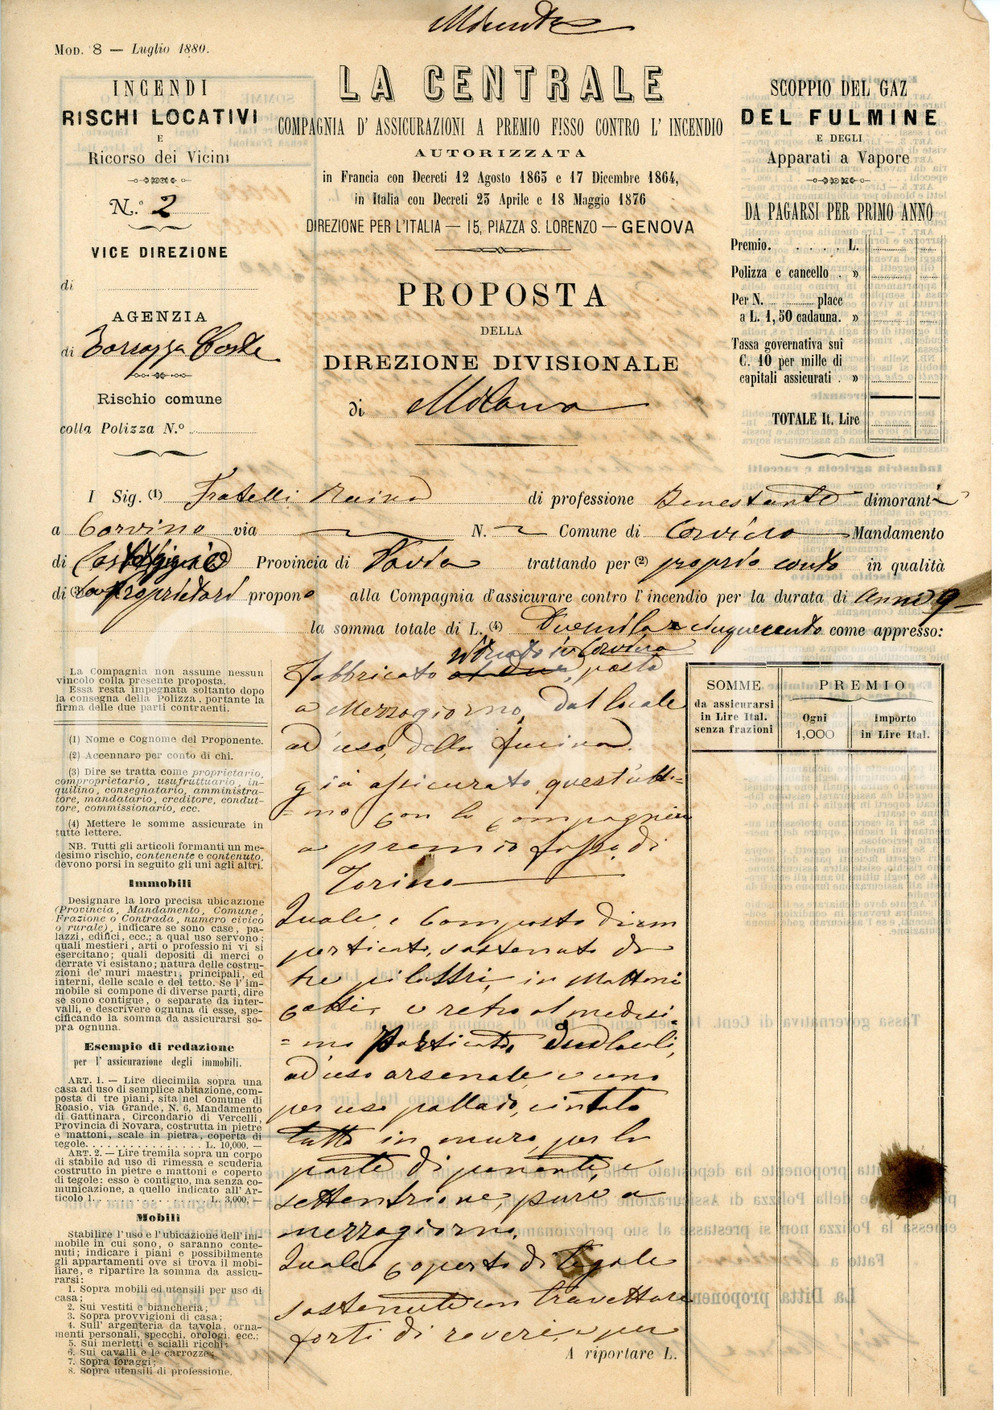 Minuta
MOD. 8 — Luglio 1880.
INCENDI
RISCHI LOCATIVI
E
Ricorso dei Vicini
N.º 2
VICE DIREZIONE
di
AGENZIA
di Torrazza Coste
Rischio comune
colla Polizza N.º
LA CENTRALE
COMPAGNIA D' ASSICURAZIONI A PREMIO FISSO CONTRO L' INCENDIO
AUTORIZZATA
in Francia con Decreti 12 Agosto 1863 e 17 Dicembre 1864,
in Italia con Decreti 23 Aprile e 18 Maggio 1876
DIREZIONE PER L'ITALIA — 15, PIAZZA S. LORENZO — GENOVA
PROPOSTA
DELLA
DIREZIONE DIVISIONALE
di Milano
SCOPPIO DEL GAZ
DEL FULMINE
E DEGLI
Apparati a Vapore
DA PAGARSI PER PRIMO ANNO
Premio. . . . . . L.
Polizza e cancello . »
Per N. place
a L. 1,50 cadauna. »
Tassa governativa sui
C. 10 per mille di
capitali assicurati . »
TOTALE It. Lire
I Sig. (1) Fratelli di professione Benestante dimoranti
a Corvino via N. Comune di Corvino Mandamento
di Provincia di Pavia trattando per (2) proprio conto in qualità
di (3) proprietari propono alla Compagnia d'assicurare contro l'incendio per la durata di anni 9
la somma totale di L. (4) Duemila e cinquecento come appresso:
La Compagnia non assume nessun
vincolo colla presente proposta.
Essa resta impegnata soltanto dopo
la consegna della Polizza, portante la
firma delle due parti contraenti.
(1) Nome e Cognome del Proponente.
(2) Accennare per conto di chi.
(3) Dire se tratta come proprietario,
comproprietario, usufruttuario, in-
quilino, consegnatario, amministra-
tore, mandatario, creditore, condut-
tore, commissionario, ecc.
(4) Mettere le somme assicurate in
tutte lettere.
NB. Tutti gli articoli formanti un me-
desimo rischio, contenente e contenuto,
devono porsi in seguito gli uni agli altri.
Immobili
Designare la loro precisa ubicazione
(Provincia, Mandamento, Comune,
Frazione o Contrada, numero civico
o rurale), indicare se sono case, pa-
lazzi, edifici, ecc.; a qual uso servono;
quali mestieri, arti o professioni vi si
esercitano; quali depositi di merci o
derrate vi esistano; natura delle costru-
zioni de' muri maestri, principali, ed
interni, delle scale e del tetto. Se l'im-
mobile si compone di diverse parti, dire
se sono contigue, o separate da inter-
valli, e descrivere ognuna di esse, spe-
cificando la somma da assicurarsi so-
pra ognuna.
Esempio di redazione
per l' assicurazione degli immobili.
ART. 1. — Lire diecimila sopra una
casa ad uso di semplice abitazione, com-
posta di tre piani, sita nel Comune di
Roasio, via Grande, N. 6, Mandamento
di Gattinara, Circondario di Vercelli,
Provincia di Novara, costrutta in pietre
e mattoni, scale in pietra, coperta di
tegole. L. 10,000. —
ART. 2. — Lire tremila sopra un corpo
di stabile ad uso di rimessa e scuderia
costrutto in pietre e mattoni e coperto
di tegole: esso è contiguo, ma senza co-
municazione, a quello indicato all' Ar-
ticolo 1. L. 3,000. —
Mobili
Stabilire l'uso e l'ubicazione dell'im-
mobile in cui sono, o saranno conte-
nuti; indicare i piani e possibilmente
gli appartamenti ove si trova il mobi-
liare, e ripartire la somma da assicu-
rarsi:
1. Sopra mobili ed utensili per uso di
casa;
2. Sui vestiti e biancheria;
3. Sopra provvigioni di casa;
4. Sull' argenteria da tavola, orna-
menti personali, specchi, orologi, ecc.;
5. Sui merletti e scialli ricchi;
6. Sui cavalli e le carrozze;
7. Sopra foraggi;
8. Sopra utensili di professione.
situato in Corvino
fabbricato posto
a Mezzogiorno, dal locale
ad uso della fucina
già assicurato quest'ulti=
=mo con la compagnia
a premio fisso di
Torino
Quale è composto di un
porticato, sostenuto da
tre pilastri, in mattoni
cotti, e retro al medesi=
=mo porticato, due locali,
ad uso arsenale e uno
per uso pollaio, cintato
tutto in muro, per la
parte di ponente, e
settentrione, pure a
mezzogiorno.
Quale coperto di tegole
sostenute con travettone
forti di rovere, e per
A riportare L.
SOMME
da assicurarsi
in Lire Ital.
senza frazioni
PREMIO
Ogni
1,000
Importo
in Lire Ital.